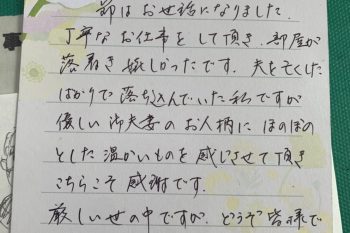 節はお世話になりました。
丁寧なお仕事をして頂き、部屋が
落着き嬉しかったです。夫を亡くした
ばかりで落ち込んでいた私ですが
優しい御夫妻のお人柄にほのぼの
とした温かいものを感じさせて頂き
こちらこそ感謝です。
厳しい世の中ですが、どうぞ皆様で